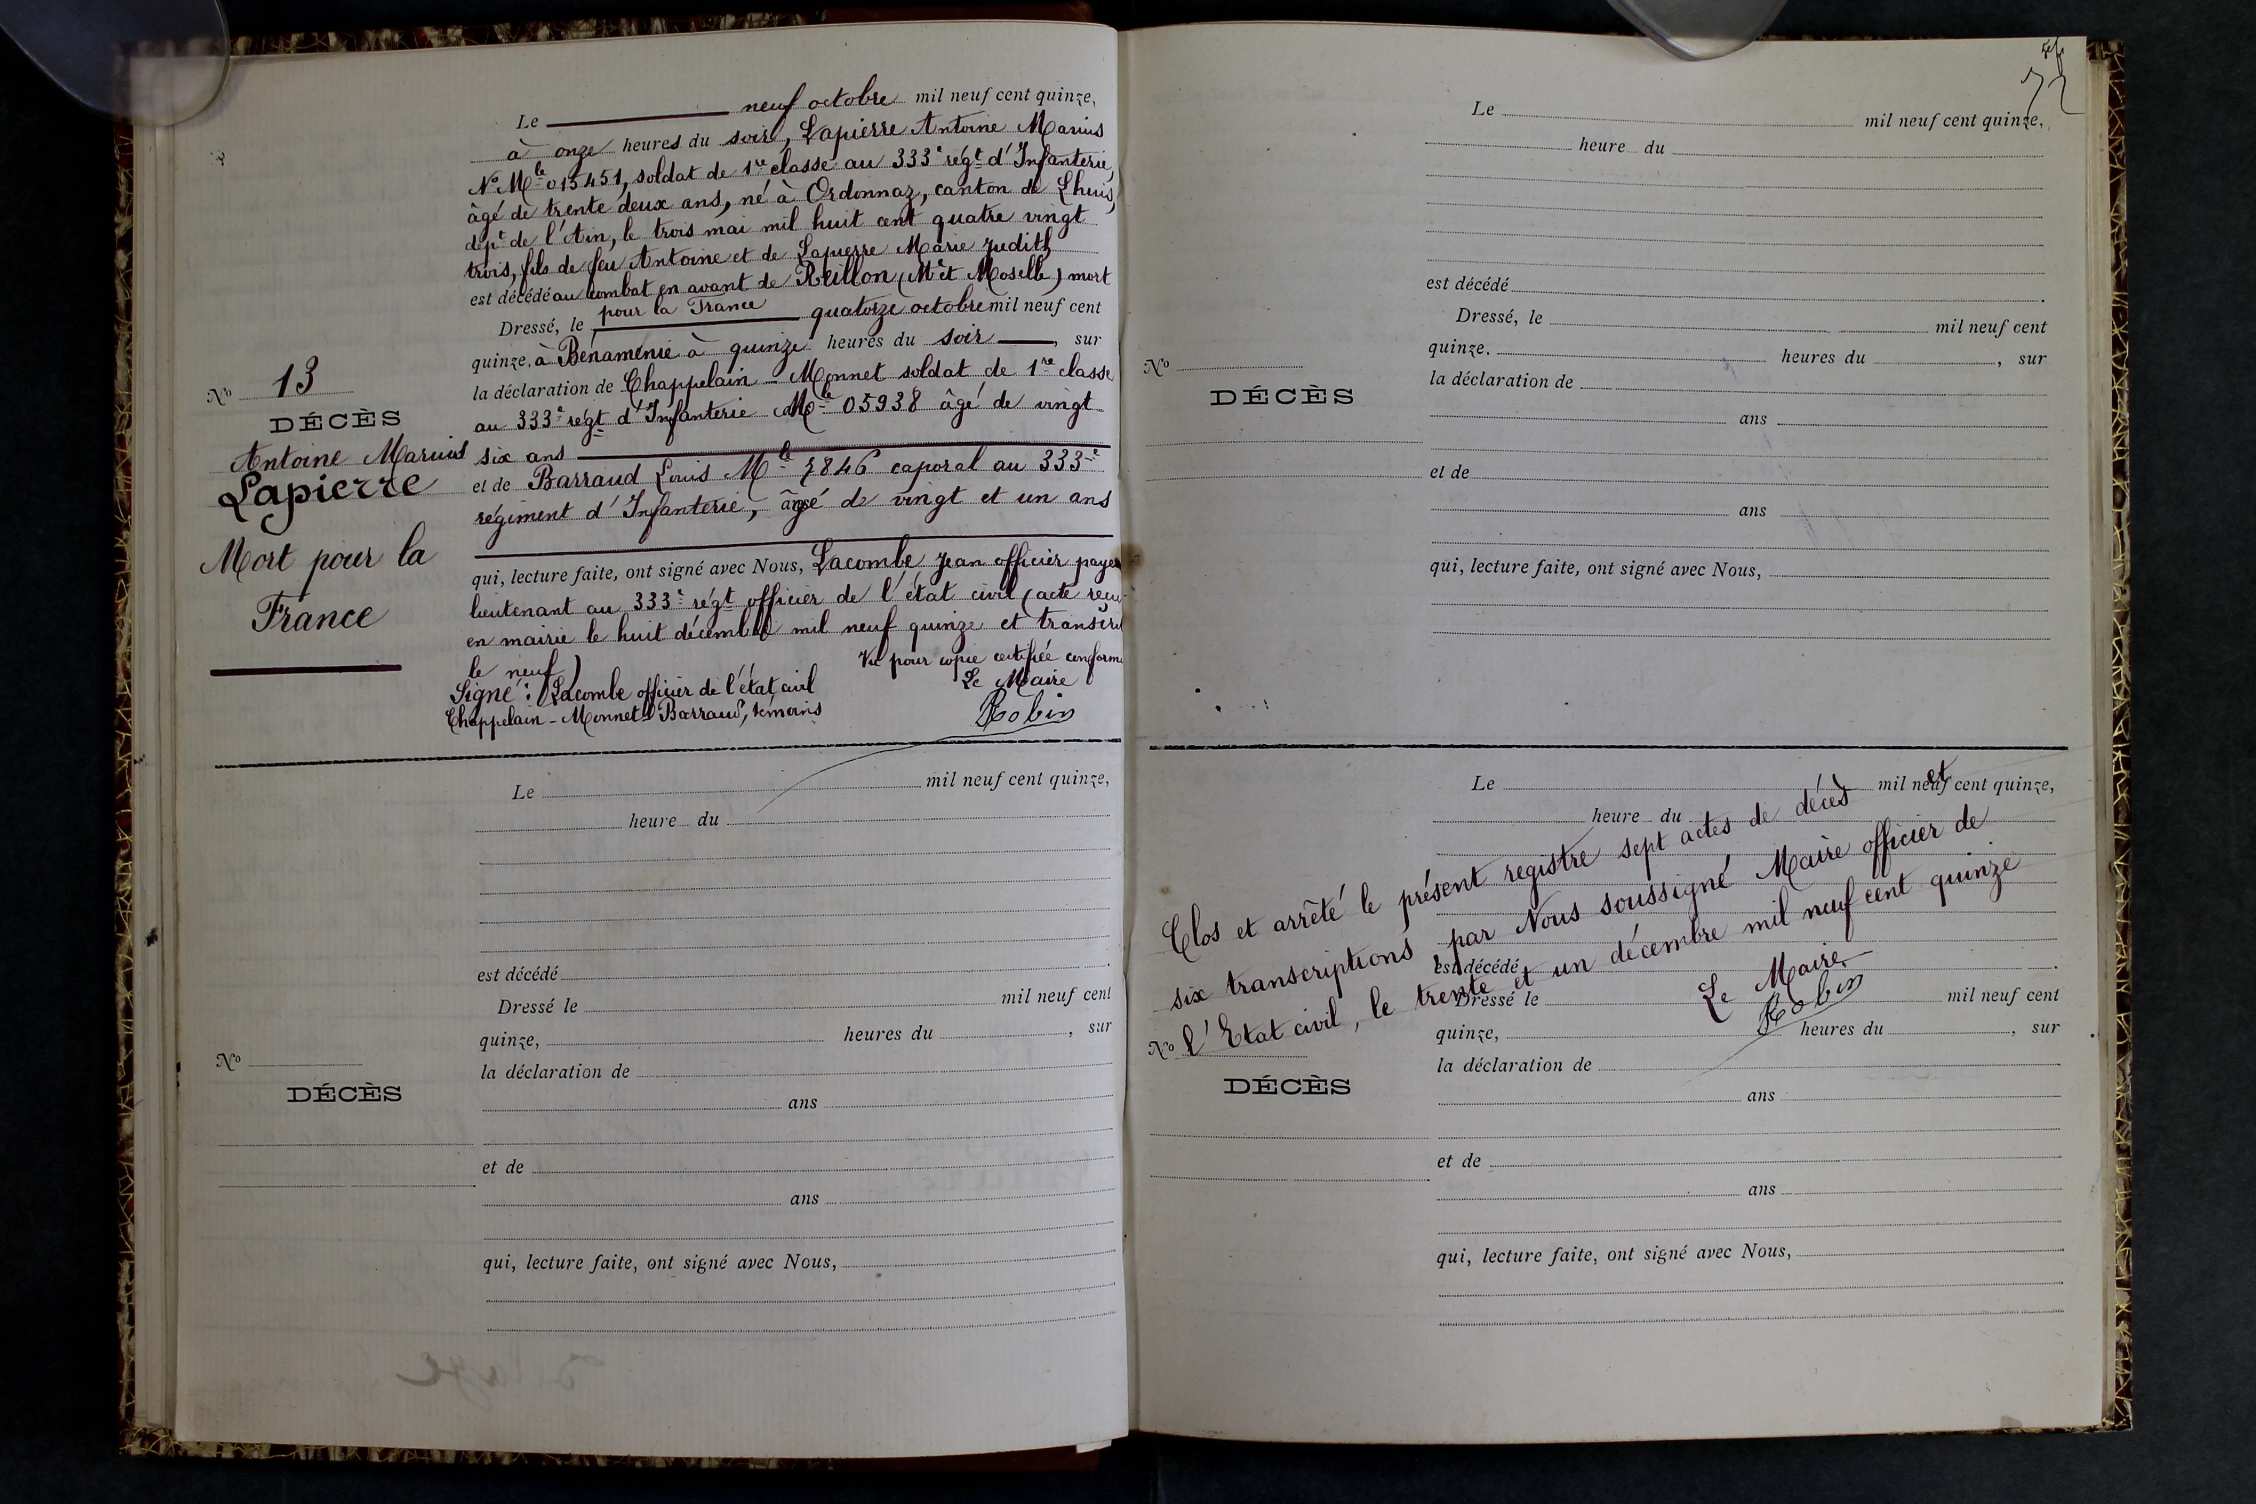 Le neuf octobre mil neuf cent quinze,
à onze heures du soir, Lapierre Antoine Marius
No Mle 015451, soldat de 1re classe au 333e régt d'Infanterie,
âgé de trente deux ans, né à Ordonnaz, canton de Lhuis,
dépt de l'Ain, le trois mai mil huit cent quatre vingt
trois, fils de feu Antoine et de Lapierre Marie Judith
est décédé au combat en avant de Reillon (Mthe et Moselle) mort
pour la France
Dressé, le quatorze octobre mil neuf cent
quinze, à Bénaménie à quinze heures du soir, sur
la déclaration de Chappelain - Monnet soldat de 1re classe
au 333e régt d'Infanterie Mle 05938 âgé de vingt
six ans
et de Barraud Louis Mle 7846 caporal au 333e
régiment d'Infanterie, âgé de vingt et un ans
qui, lecture faite, ont signé avec Nous, Lacombe Jean officier payeu
lieutenant au 333e régt officier de l'état civil (acte reçu
en mairie le huit décembre mil neuf quinze et transcrit
le neuf)
Vu pour copie certifiée conforme
Signé : Lacombe officier de l'état civil
Le Maire
Chappelain - Monnet & Barraud, témoins
Robin
No 13
DÉCÈS
Antoine Marius
Lapierre
Mort pour la
France
Le mil neuf cent quinze,
heure du
est décédé
Dressé le mil neuf cent
quinze, heures du , sur
No
la déclaration de
DÉCÈS
ans
et de
ans
qui, lecture faite, ont signé avec Nous,
72
Le mil neuf cent quinze,
heure du
est décédé
Dressé, le mil neuf cent
quinze. heures du , sur
No
la déclaration de
DÉCÈS
ans
et de
ans
qui, lecture faite, ont signé avec Nous,
Le mil neuf cent quinze,
heure du
Clos et arrêté le présent registre sept actes de décès et
six transcriptions, par Nous soussigné Maire officier de
l'Etat civil, le trente et un décembre mil neuf cent quinze
Le Maire
Robin
est décédé
Dressé le mil neuf cent
quinze, heures du , sur
No
la déclaration de
DÉCÈS
ans
et de
ans
qui, lecture faite, ont signé avec Nous,